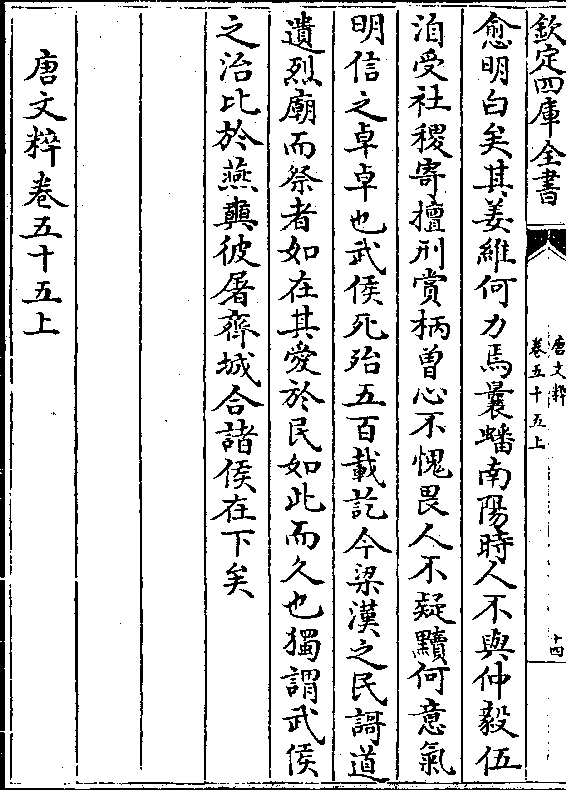 欽定四庫全書
唐文粹
卷五十五上
十四
愈明白矣其姜維何力焉曩蟠南陽時人不與仲毅伍
洎受社稷寄擅刑賞柄曾心不愧畏人不疑黷何意氣
明信之卓卓也武侯死殆五百載訖今梁漢之民謌道
遺烈廟而祭者如在其愛於民如此而久也獨謂武侯
之治比於燕奭彼屠齊城合諸侯在下矣
唐文粹卷五十五上